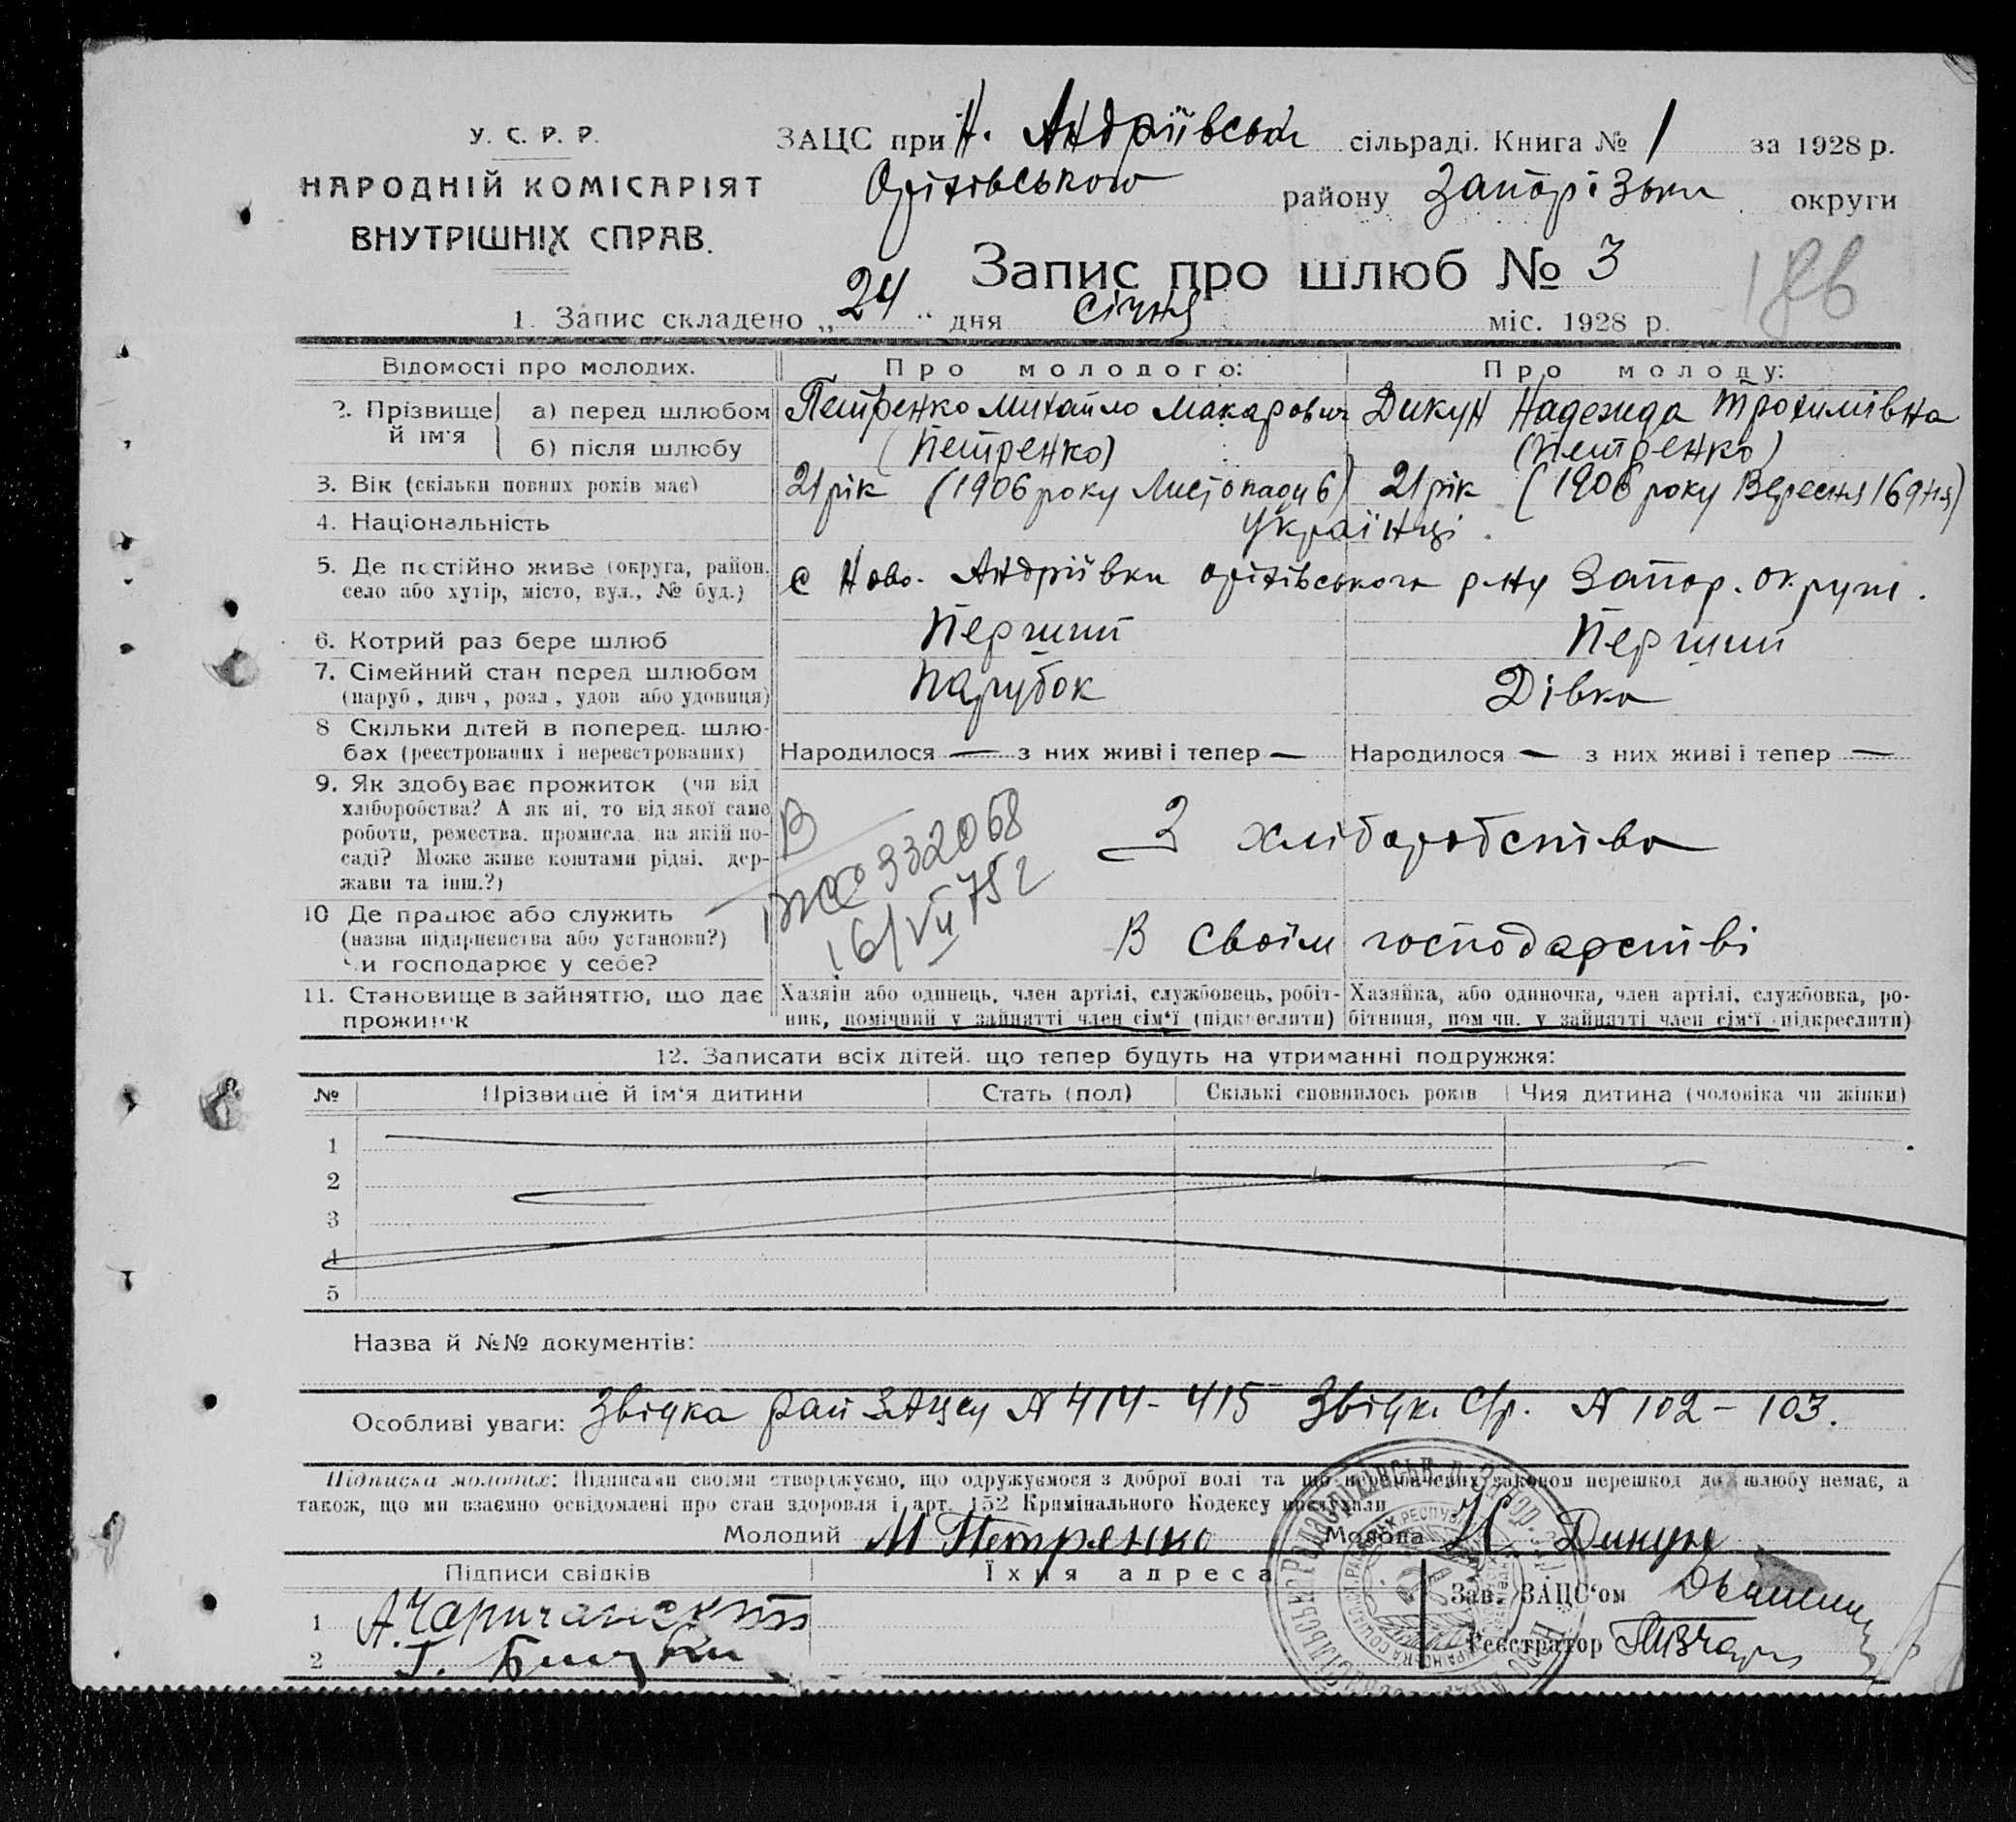 У. С. Р. Р.
НАРОДНІЙ КОМІСАРІЯТ
ВНУТРІШНІХ СПРАВ.
ЗАЦС при Н. Андріївській сільраді. Книга № 1 за 1928 р.
Оріхівського району Запорізьки округи
Запис про шлюб № 3
186
1. Запис складено „24“ дня січня міс. 1928 р.
Відомості про молодих. Про молодого: Про молоду:
2. Прізвище й ім'я а) перед шлюбом Петренко Михайло Макарович Дикун Надежда Трохимівна
б) після шлюбу (Петренко) (Петренко)
3. Вік (скільки повних років має) 21 рік (1906 року Листопаду 6) 21 рік (1906 року Вересня 16 дня)
4. Національність Українці.
5. Де постійно живе (округа, район, с Ново-Андріївки Оріхівського р-ну Запор. округи.
село або хутір, місто, вул., № буд.)
6. Котрий раз бере шлюб Перший Перший
7. Сімейний стан перед шлюбом Парубок Дівка
(паруб., дівч., розл., удов. або удовиця)
8 Скільки дітей в поперед. шлю-
бах (реєстрованих і нереєстрованих) Народилося — з них живі і тепер — Народилося — з них живі і тепер —
9. Як здобуває прожиток (чи від
хліборобства? А як ні, то від якої саме
роботи, ремества, промисла, на якій по-
саді? Може живе коштами рідні, дер-
жави та інш.?)
З хліборобства
932068
16/VII 75 г
10 Де працює або служить
(назва підприємства або установи?)
Чи господарює у себе?
В своїм господарстві
11. Становище в зайняттю, що дає
прожиток
Хазяїн або одинець, член артілі, службовець, робіт-
ник, помічний у зайнятті член сім'ї (підкреслити)
Хазяйка, або одиночка, член артілі, службовка, ро-
бітниця, помічн. у зайнятті член сім'ї (підкреслити)
12. Записати всіх дітей, що тепер будуть на утриманні подружжя:
№ Прізвище й ім'я дитини Стать (пол) Скількі сповнилось років Чия дитина (чоловіка чи жінки)
1
2
3
4
5
Назва й №№ документів:
Особливі уваги: Звідка рай ЗАЦСу № 414-415 Звідк. С/р. № 102-103.
Підписка молодих: Підписами своїми стверджуємо, що одружуємося з доброї волі та що передбачених законом перешкод до шлюбу немає, а
також, що ми взаємно освідомлені про стан здоровля і арт. 152 Кримінального Кодексу прослухали
Молодий М Петренко Молода Н Дикун
Підписи свідків Їхня адреса
Зав. ЗАЦС'ом
1 А. Чаричанский
Реєстратор
2 Г.